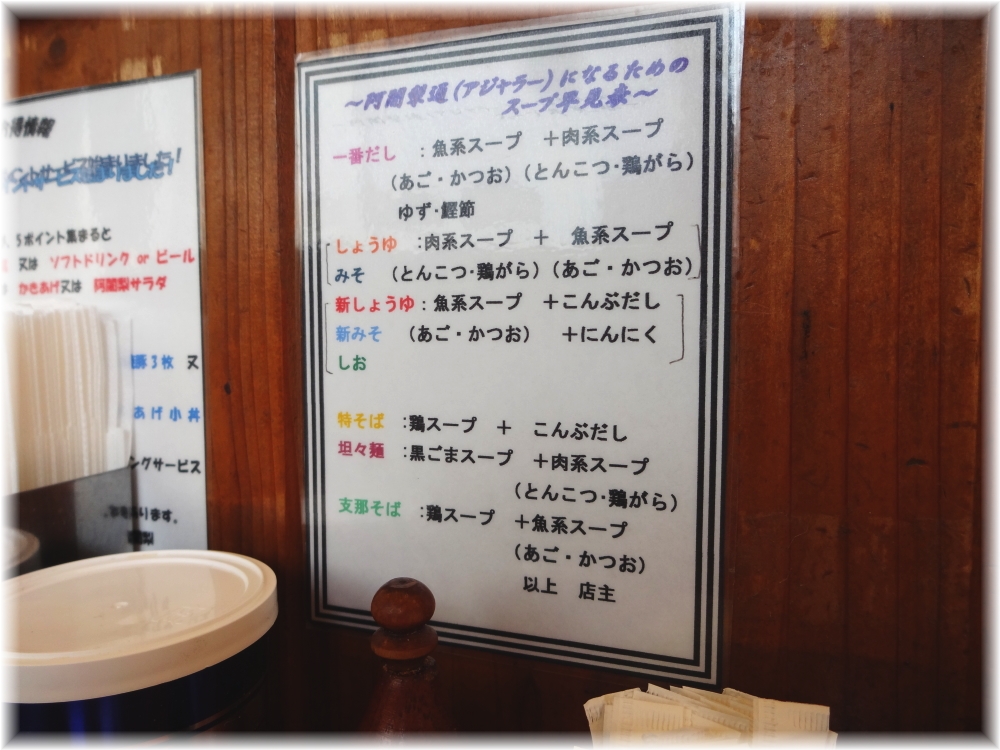 得情報
サービス始まりました!
5ポイント集まると
又は ソフトドリンク or ビール
かきあげ又は 阿闍梨サラダ
豚3枚 又
あげ小丼
ングサービス
あります。
~阿闍梨通(アジャラー)になるための
スープ早見表~
一番だし :魚系スープ +肉系スープ
(あご・かつお)(とんこつ・鶏がら)
ゆず・鰹節
しょうゆ :肉系スープ + 魚系スープ
みそ (とんこつ・鶏がら)(あご・かつお)
新しょうゆ:魚系スープ +こんぶだし
新みそ (あご・かつお) +にんにく
しお
特そば :鶏スープ + こんぶだし
坦々麺 :黒ごまスープ +肉系スープ
(とんこつ・鶏がら)
支那そば :鶏スープ +魚系スープ
(あご・かつお)
以上 店主